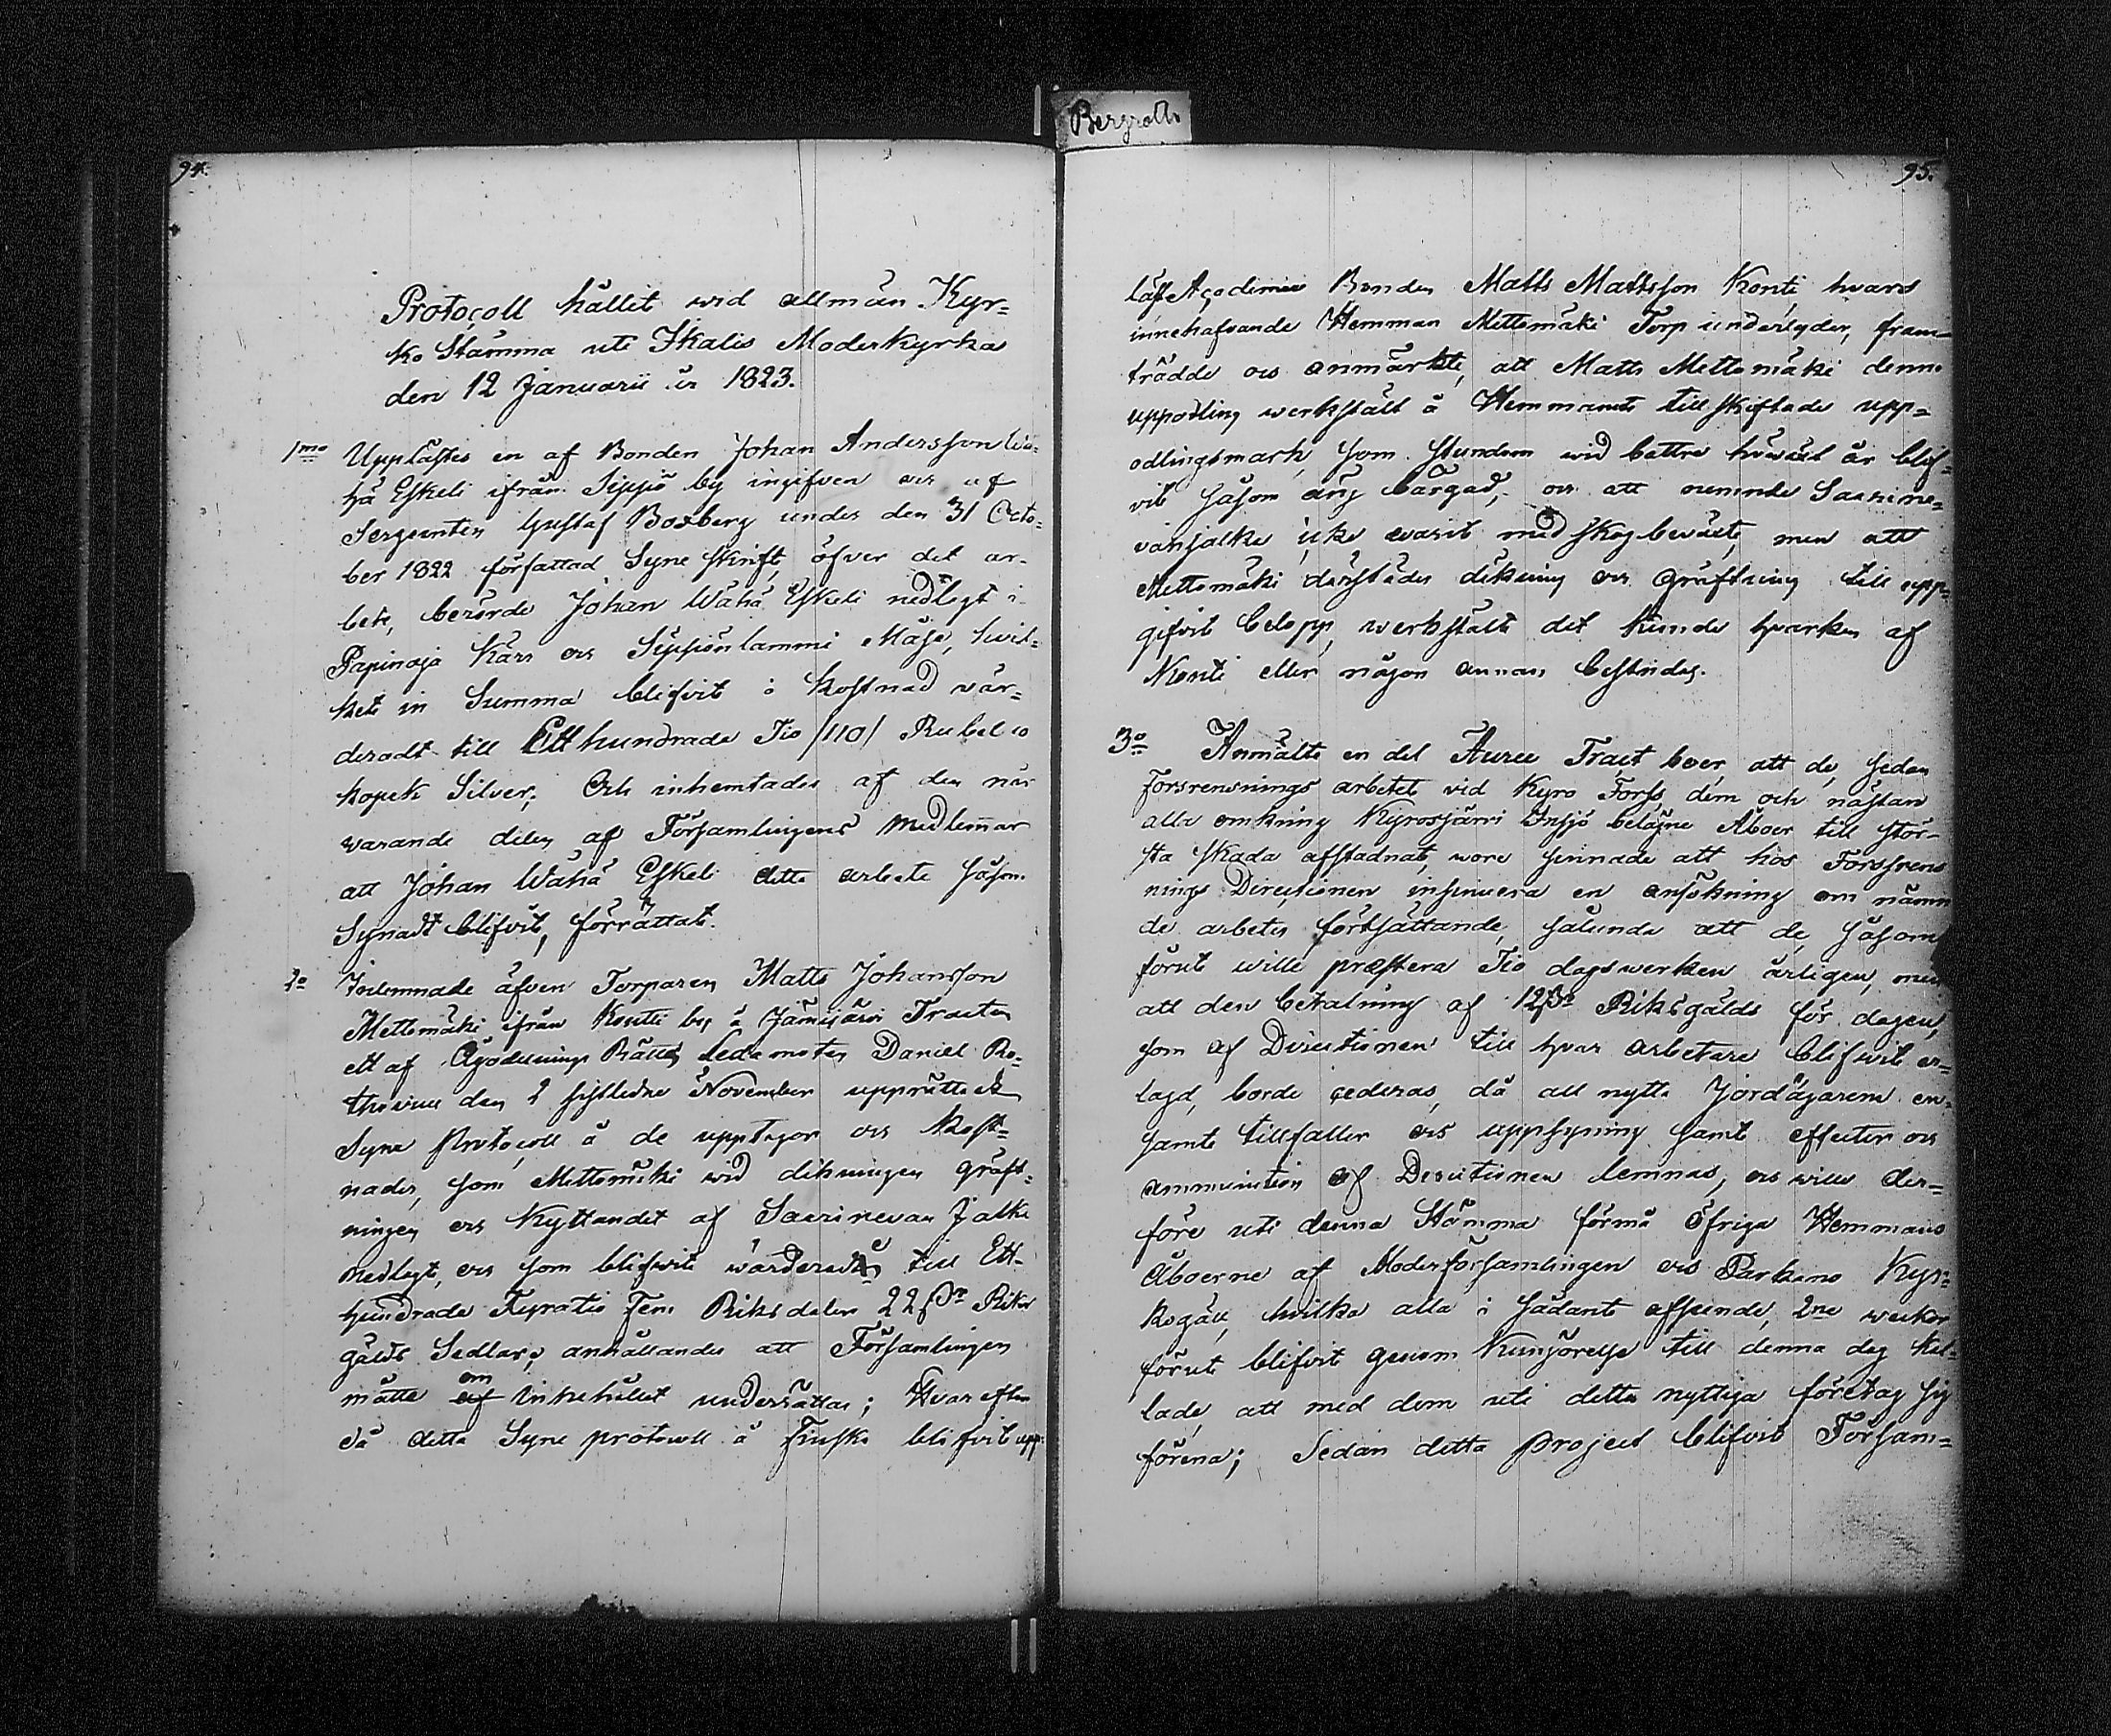 Bergroth
94.
Protocoll hållit wid allmän Kyr=
ko Stämma uti Ikalis Moderkyrka
den 12 Januarii år 1823.
1mo Upplästes en af Bonden Johan Andersson Wä-
hä Eskeli ifrån Sippis by ingifven och af
Sergeanten Gustaf Boxberg under den 31 Octo-
ber 1822 författad Syne Skrift, öfver det ar-
bete, berörde Johan Wähä Eskeli nedlagt i
Papinoja Kärr och Sippiönlammi Måse, hvil-
ket in Summa blifvit i kostnad vär=
deradt till Ett hundrade Tio /110/ Rubel 10
kopek Silver; Och inhemtades af den när
warande delen af Församlingens medlemmar
att Johan Wähä Eskeli detta arbete såsom
Synadt blifvit, förrättat.
2o Inlemnade äfven Torparen Matts Johansson
Mettomäki ifrån Konti by å Jämijärvi Tracten
ett af Ägodelnings Rätts Ledamoten Daniel
den 2 sistledne November upprättadt
Syne Protocoll å de upptagor och kost=
nader, som Mettomäki wid dikningen gräft=
ningen och Kyttandet af Saarinevan Jalki
nedlagt, och som blifwit wärderadt till Ett-
hundrade Fyratio Fem Riksdaler 22 sk Riks
gälds Sedlar, anhållandes att Församlingen
måtte om inehållet underrättas; Hvarefter
då detta Syne protocoll å Finska blifvit upp-
95.
läst Bonden Matts Mattsson Konti, hvars
innehafvande Hemman Mettomäki Torp underlyder, fram-
trädde och anmärkte, att Matts Mettomäki denne
uppodling werkstält å Hemmanets tillskiftade upp=
odlingsmark, som stundom wid bättre höwäxt år blif=
vit såsom äng bärgad, och att nemnde Saarine=
vanjalka icke warit med skog beväxt, men att
Mettomäki därstädes dikning och gräftning till upp-
gifvit belopp, werkstält det kunde hvarken af
Konti eller någon annan bestridas.
3o Anmälte en del Aure Tract boer, att de, sedan
Forsrensnings arbetet vid Kyro Forss, dem och nästan
alla omkring Kyrosjärvi Insjö belägne Åboer till stör-
sta skada afstadnat, wore sinnade att hos Forssrens
nings Directionen insinuera en ansökning om nämn
de arbetes fortsättande, sålunda att de, såsom
förut wille præstera Tio dagswerken årligen, men
att den betalning af 12 sk Riksgälds för dagen,
som af Directionen till hvar arbetare blifwit er-
lagd, borde cederas, då all nytta Jordägarena en-
samt tillfaller och uppsyning samt effecter och
ammunition af Directionen lemnas, och wille der=
före uti denna Stämma förmå öfriga Hemmans
Åboerne af Moderförsamlingen och Parkano Kyr=
kogäll, hvilka alla i sådant afseende, 2ne weckor
förut blifvit genom Kungörelse till denna dag kal-
lade, att med dem uti detta nyttiga företag sig
förena; Sedan detta Project blifvit Försam=